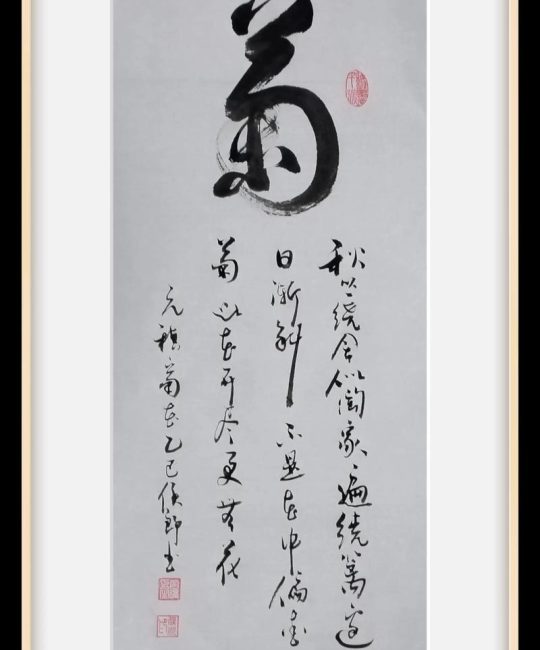 菊
秋丛绕舍似陶家遍绕篱边
日渐斜不是花中偏爱
菊此花开尽更無花
元稹菊花乙巳侯郎书